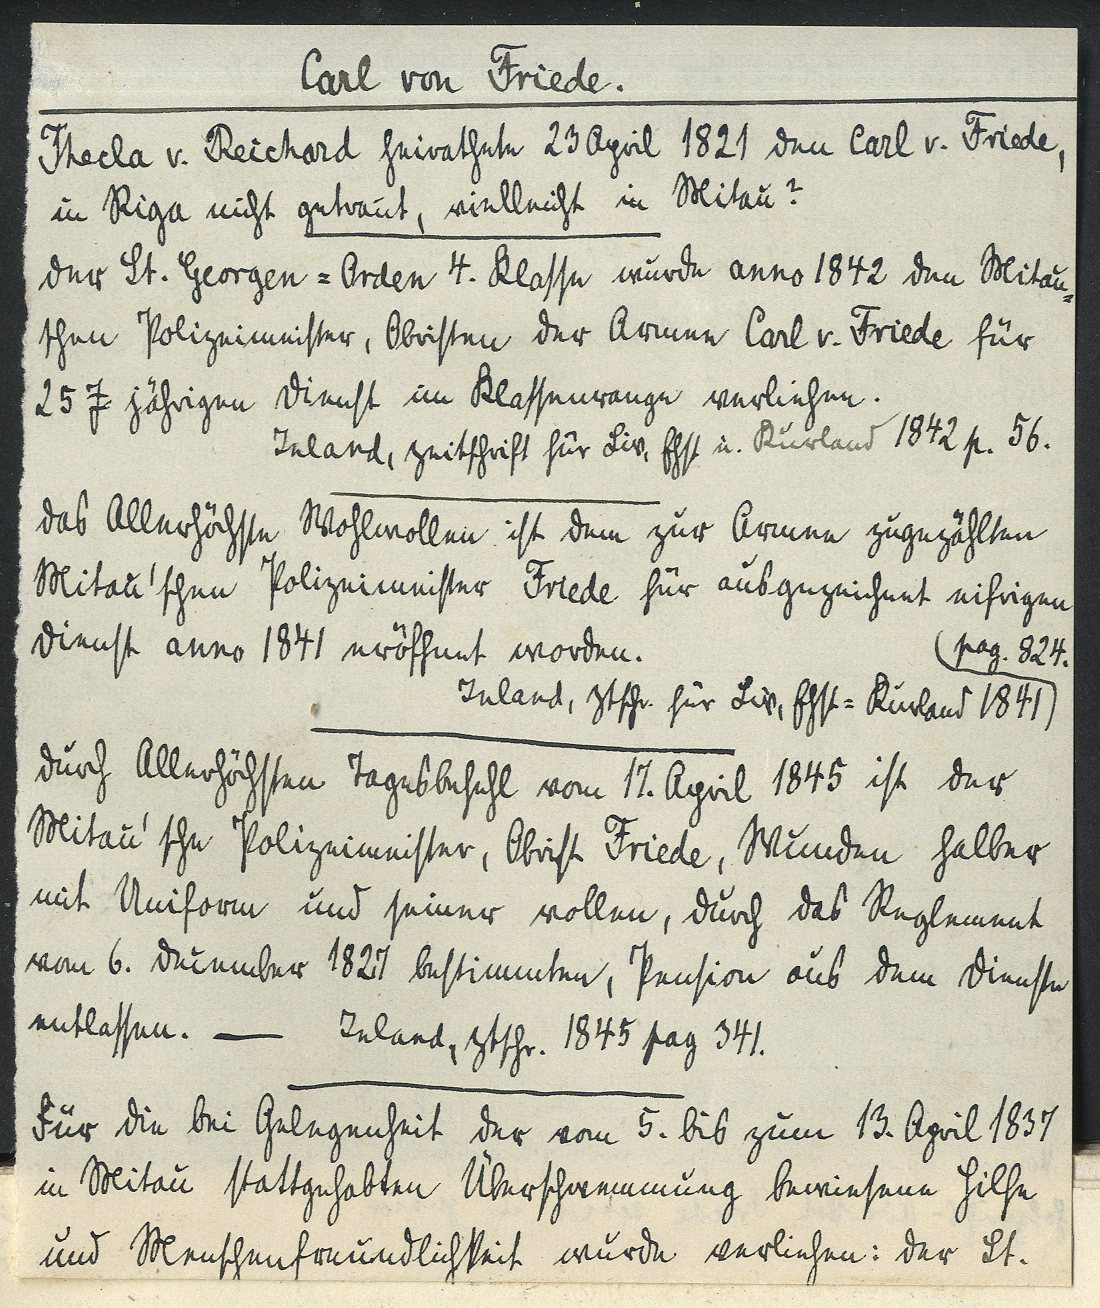 Carl von Friede.
Thecla v. Reichard heirathete 23 April 1821 den Carl v. Friede,
in Riga nicht getraut, vielleicht in Mitau?
der St. Georgen=Orden 4. Klasse wurde anno 1842 dem Mitau=
schen Polizeimeister, Obristen der Armee Carl v. Friede für
25 jährigen Dienst im Klassenrange verliehen.
Inland, Zeitschrift für Liv, Ehst u. Kurland 1842 p. 56.
das Allerhöchste Wohlwollen ist dem zur Armee zugezählten
Mitau'schen Polizeimeister Friede für ausgezeichnet eifrigen
Dienst anno 1841 eröffnet worden.
(pag. 824.
Inland, Ztschr. für Liv, Ehst= Kurland 1841)
durch Allerhöchsten Tagesbefehl vom 17. April 1845 ist der
Mitau'sche Polizeimeister, Obrist Friede, Wunden halber
mit Uniform und seiner vollen, durch das Reglement
vom 6. December 1827 bestimmten, Pension aus dem Dienste
entlassen. — Inland, Ztschr. 1845 pag 341.
Für die bei Gelegenheit der vom 5. bis zum 13. April 1837
in Mitau stattgehabten Überschwemmung bewiesene Hilfe
und Menschenfreundlichkeit wurde verliehen: der St.